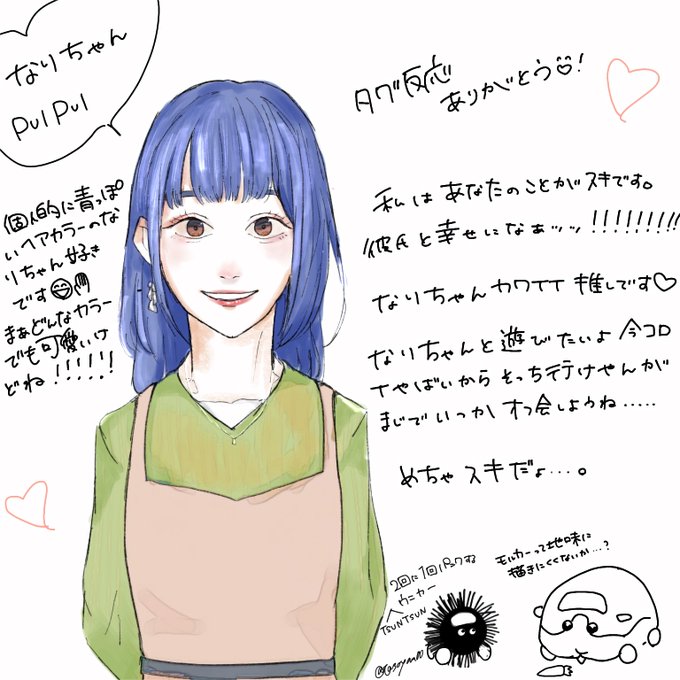 なりちゃん
PUl PUl
タグ反応
ありがとう!
個人的に青っぽ
いヘアカラーのな
りちゃん好き
です😄
まぁどんなカラー
でも可愛いけ
どね!!!!!
私はあなたのことがスキです。
彼氏と幸せになぁッッ!!!!!!!!!
なりちゃんカワイイ推しです♡
なりちゃんと遊びたいよ今コロ
ナやばいからそっち行けやんが
まじでいつかオフ会しようね.....
めちゃスキだよ....。
2回に1回パンクする
ウニカー
TSUNTSUN
モルカーって地味に
描きにくくないか...?